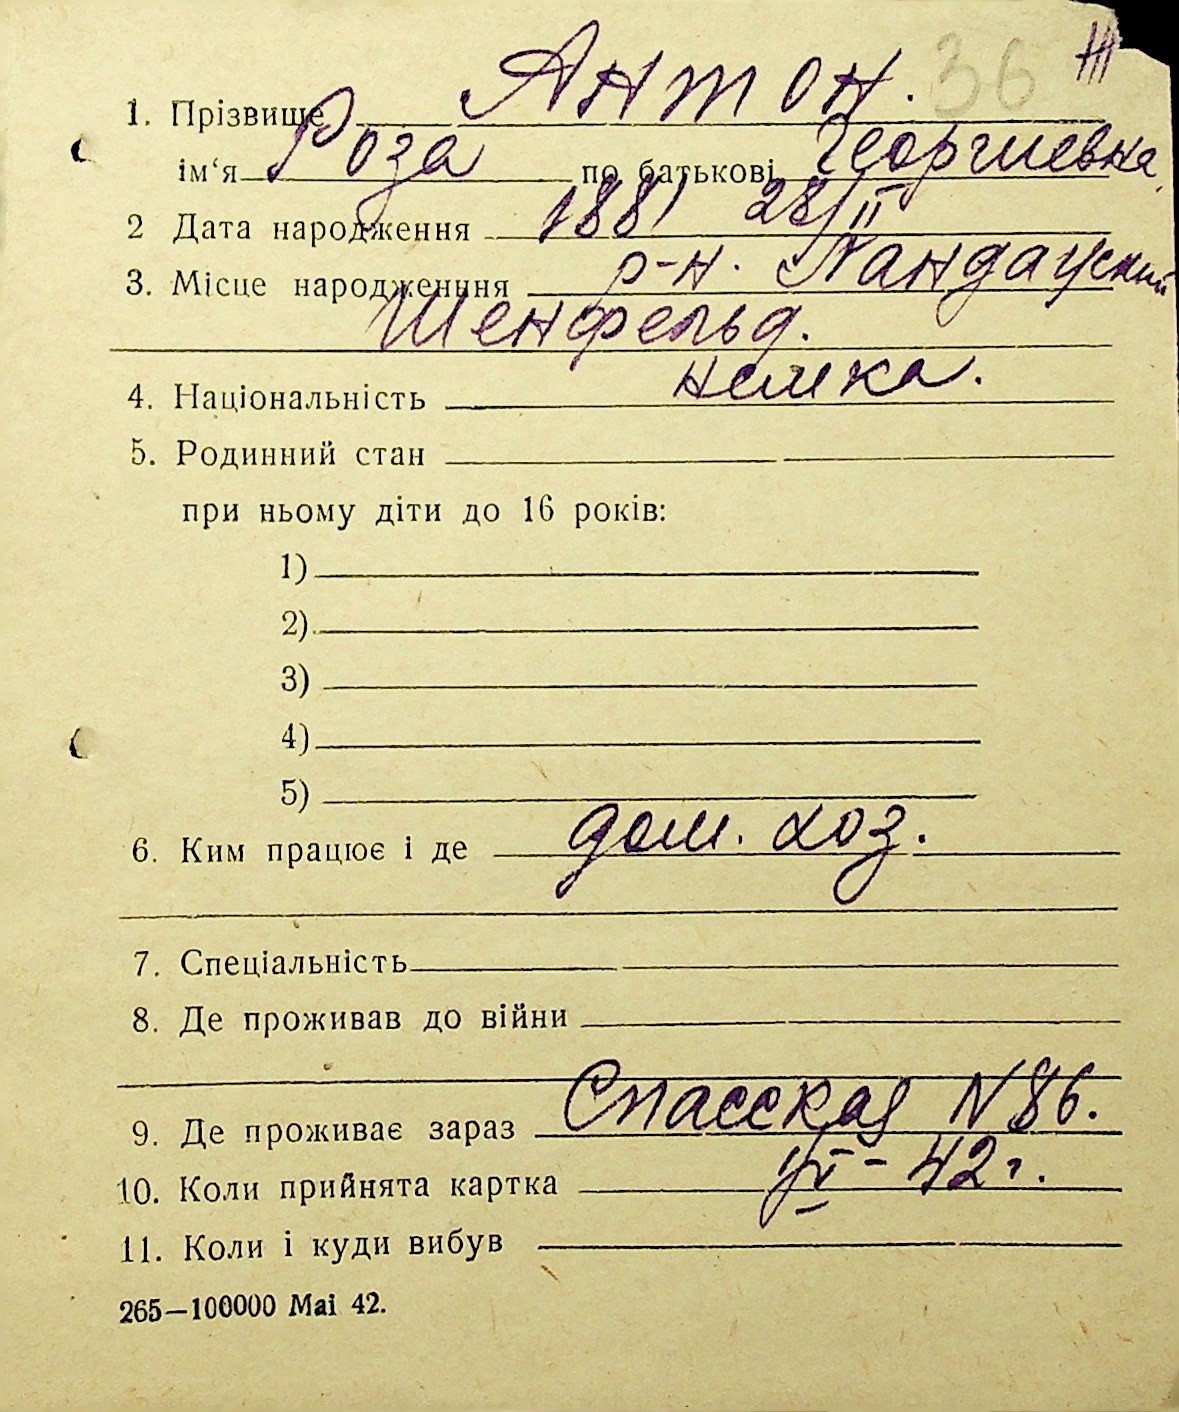 36 Ж
1. Прізвище Антон.
ім‘я Роза по батькові Георгиевна
2 Дата народження 1881 28/II
3. Місце народженння р-н. Ландауский
Шенфельд.
4. Національність немка.
5. Родинний стан
при ньому діти до 16 років:
1)
2)
3)
4)
5)
6. Ким працює і де дом. хоз.
7. Спеціальність
8. Де проживав до війни
9. Де проживає зараз Спасская N 86.
10. Коли прийнята картка VI - 42 г.
11. Коли і куди вибув
265—100000 Mai 42.